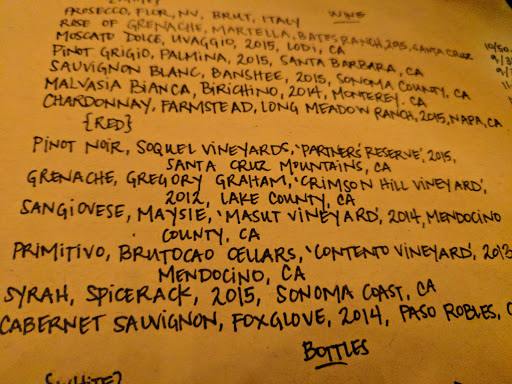 WINE
PROSECCO, FLOR, NV, BRUT, ITALY
ROSE OF GRENACHE, MARTELLA, BATES RANCH, 2015, SANTA CRUZ
MOSCATO DOLCE, UVAGGIO, 2015, LODI, CA 10/50.
PINOT GRIGIO, PALMINA, 2015, SANTA BARBARA, CA
SAUVIGNON BLANC, BANSHEE, 2015, SONOMA COUNTY, CA
MALVASIA BIANCA, BIRICHINO, 2014, MONTEREY. CA
CHARDONNAY, FARMSTEAD, LONG MEADOW RANCH, 2015, NAPA, CA
{RED}
PINOT NOIR, SOQUEL VINEYARDS, 'PARTNERS' RESERVE', 2015,
SANTA CRUZ MOUNTAINS, CA
GRENACHE, GREGORY GRAHAM, 'CRIMSON HILL VINEYARD',
2012, LAKE COUNTY, CA
SANGIOVESE, MAYSIE, 'MASUT VINEYARD', 2014, MENDOCINO
COUNTY, CA
PRIMITIVO, BRUTOCAO CELLARS, 'CONTENTO VINEYARD', 2013
MENDOCINO, CA
SYRAH, SPICERACK, 2015, SONOMA COAST, CA
CABERNET SAUVIGNON, FOXGLOVE, 2014, PASO ROBLES,
BOTTLES